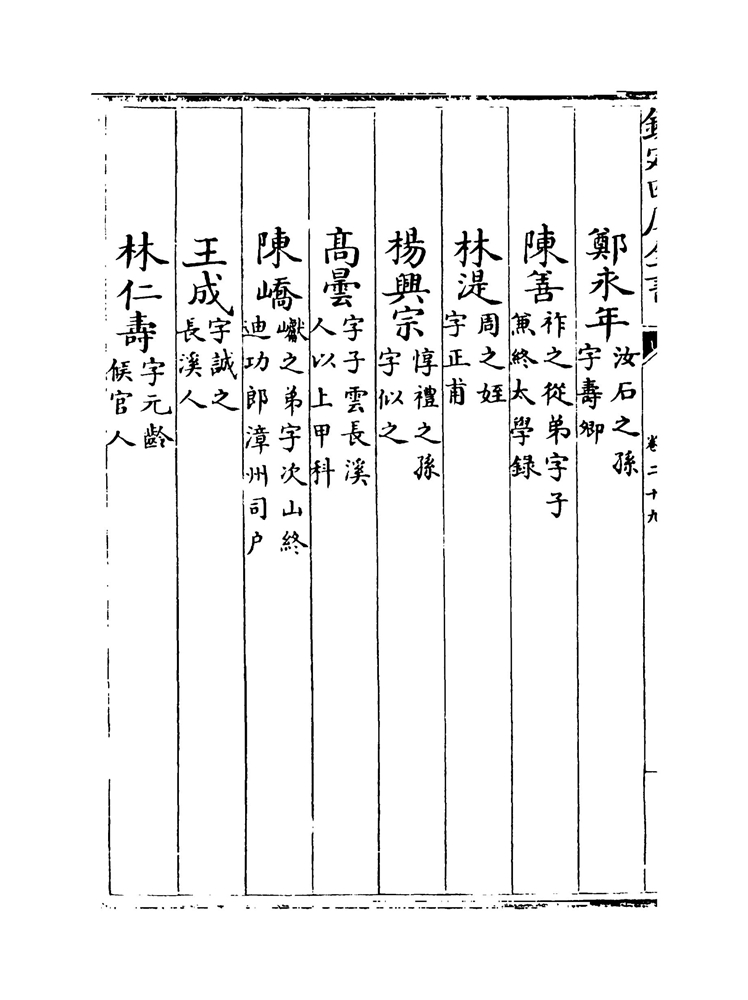 欽定四庫全書
卷二十九
鄭永年汝石之孫字壽卿
陳善祚之從弟字子蒹終太學錄
林湜周之姪字正甫
楊興宗惇禮之孫字似之
髙曇字子雲長溪人以上甲科
陳嶠巘之弟字次山終迪功郎漳州司户
王成字誠之長溪人
林仁壽字元齡候官人